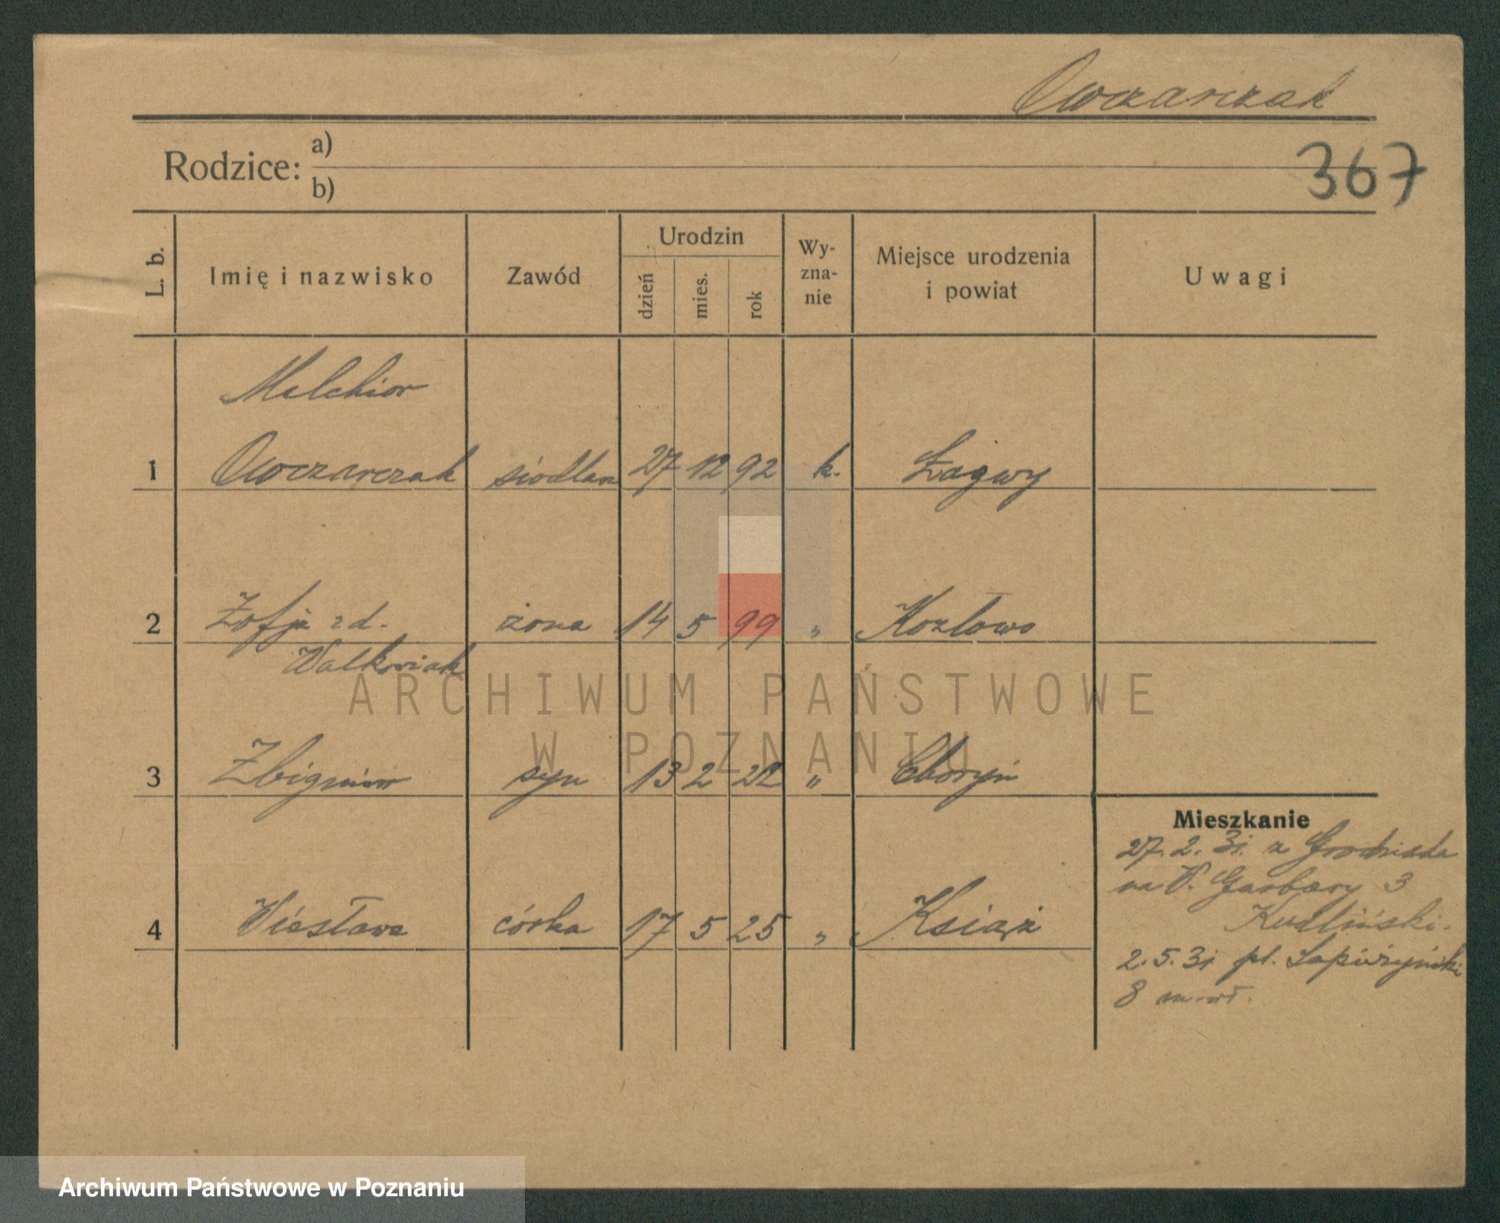 Owczarczak
Rodzice: a)
b)
367
L. b.
Imię i nazwisko
Zawód
Urodzin
dzień
mies.
rok
Wy-
zna-
nie
Miejsce urodzenia
i powiat
Uwagi
Melchior
1 Owczarczak siodlarz 27 12 92 k. Łagwy
2 Zofja zd. żona 14 5 99 „ Kozłowo
Walkowiak
3 Zbigniew syn 13 2 22 „ Choryń
4 Wiesława córka 17 5 25 „ Książ
Mieszkanie
27. 2. 31. z Grodziska
na W. Garbary 3
2. 5. 31 pl. Sapieżyński
8 m.
ARCHIWUM PAŃSTWOWE
W POZNANIU
Archiwum Państwowe w Poznaniu